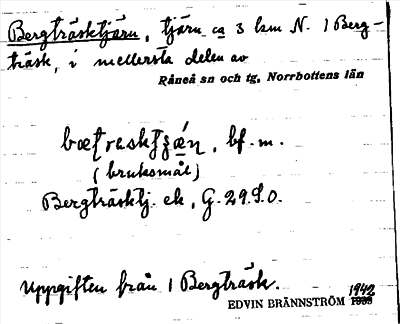 Bergträsktjärn, tjärn ca 3 km N. 1 Berg-
träsk, i mellersta delen av
Råneå sn och tg, Norrbottens län
bf. m.
(bruksmål)
Bergträsktj. ek, G. 29. S. O.
Uppgiften från 1 Bergträsk.
1942
EDVIN BRÄNNSTRÖM 1938